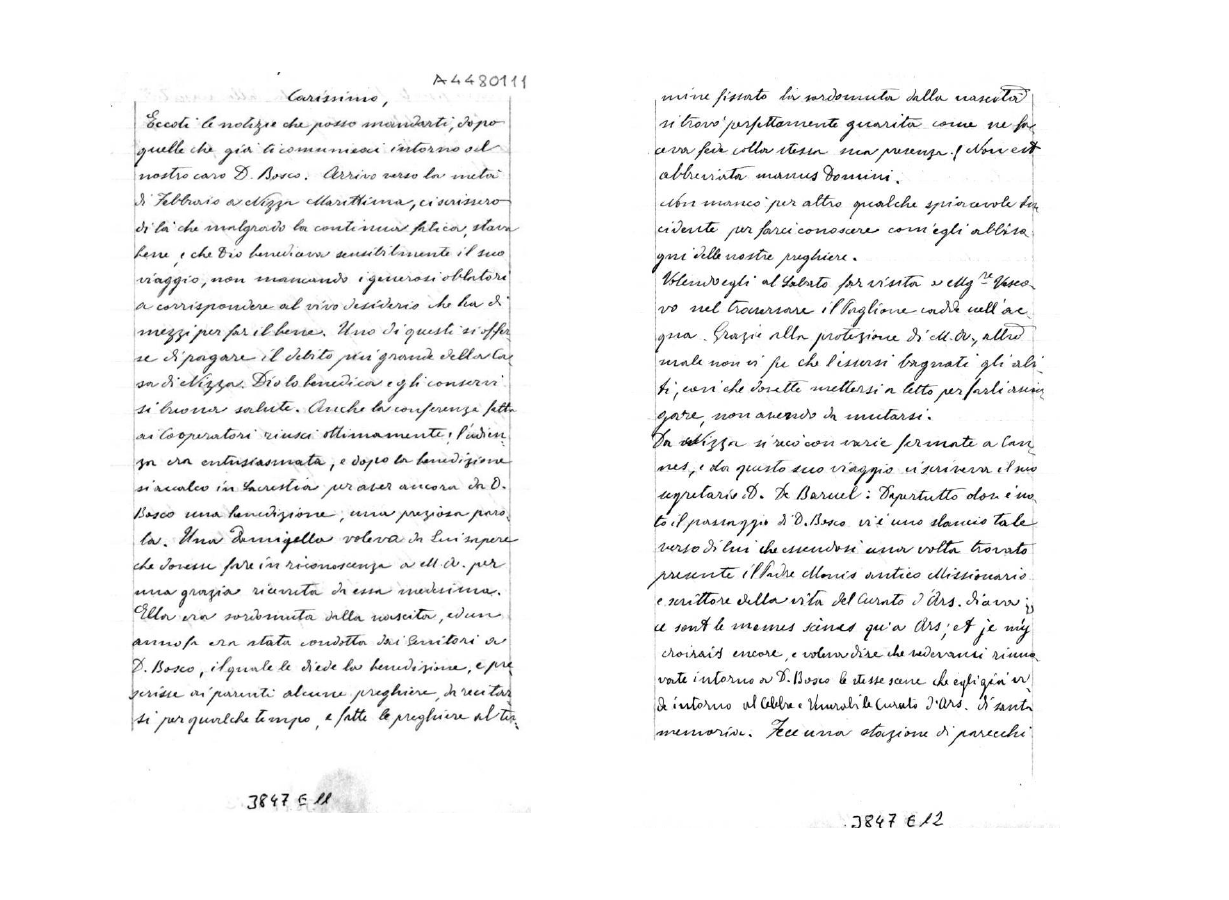 A4480111
Carissimo,
Eccoti le notizie che posso mandarti, dopo
quelle che già ti comunicai intorno al
nostro caro D. Bosco. Arrivo verso la metà
di Febbraio a Nizza Marittima, ci scrissero
di là che malgrado la continua fatica, stava
bene, e che Dio benediceva sensibilmente il suo
viaggio, non mancando i generosi oblatori
a corrispondere al vivo desiderio che ha di
mezzi per far il bene. Uno di questi si offer
se di pagare il debito più grande della Ca
sa di Nizza. Dio lo benedica e gli conservi
si buona salute. Anche la conferenza fatta
ai Cooperatori riuscì ottimamente; l'udien
za era entusiasmata, e dopo la benedizione
si accalcò in Sacrestia per aver ancora da D.
Bosco una benedizione, una preziosa paro
la. Una Damigella voleva da Lui sapere
che dovesse fare in riconoscenza a M. A. per
una grazia ricevuta da essa medesima.
Ella era sordomuta dalla nascita, ed un
anno fa era stata condotta dai Genitori a
D. Bosco, il quale le diede la benedizione, e pre
scrisse ai parenti alcune preghiere, da recitar
si per qualche tempo, e fatte le preghiere al ter
3847 E 11
mine fissato la sordomuta dalla nascita
si trovò perfettamente guarita come ne fa
ceva fede colla stessa sua presenza! Non est
abbreviata manus Domini.
Non mancò per altro qualche spiacevole in
cidente per farci conoscere com'egli abbiso
gni delle nostre preghiere.
Volendo egli al Sabato far visita a Mgre Vesco
vo nel traversare il Paglione cadde nell'ac
qua. Grazie alla protezione di M. A., altro
male non vi fu che l'essersi bagnati gli abi
ti, così che dovette mettersi a letto per farli asciu
gare, non avendo da mutarsi.
Da Nizza si recò con varie fermate a Can
nes, e da questo suo viaggio ci scriveva il suo
segretario D. De Barruel: Dapertutto dove è no
to il passaggio di D. Bosco vi è uno slancio tale
verso di lui che essendosi una volta trovato
presente il Padre Monis antico Missionario
e scrittore della vita del Curato d'Ars. diceva:
ce sont le memes scènes qu'a Ars; et je m'y
croirais encore, e voleva dire che vedevansi rinno
vate intorno a D. Bosco le stesse scene che egli già vi
de intorno al Celebre e Venerabile Curato d'Ars. di santa
memoria. Fece una stazione di parecchi
3847 E 12